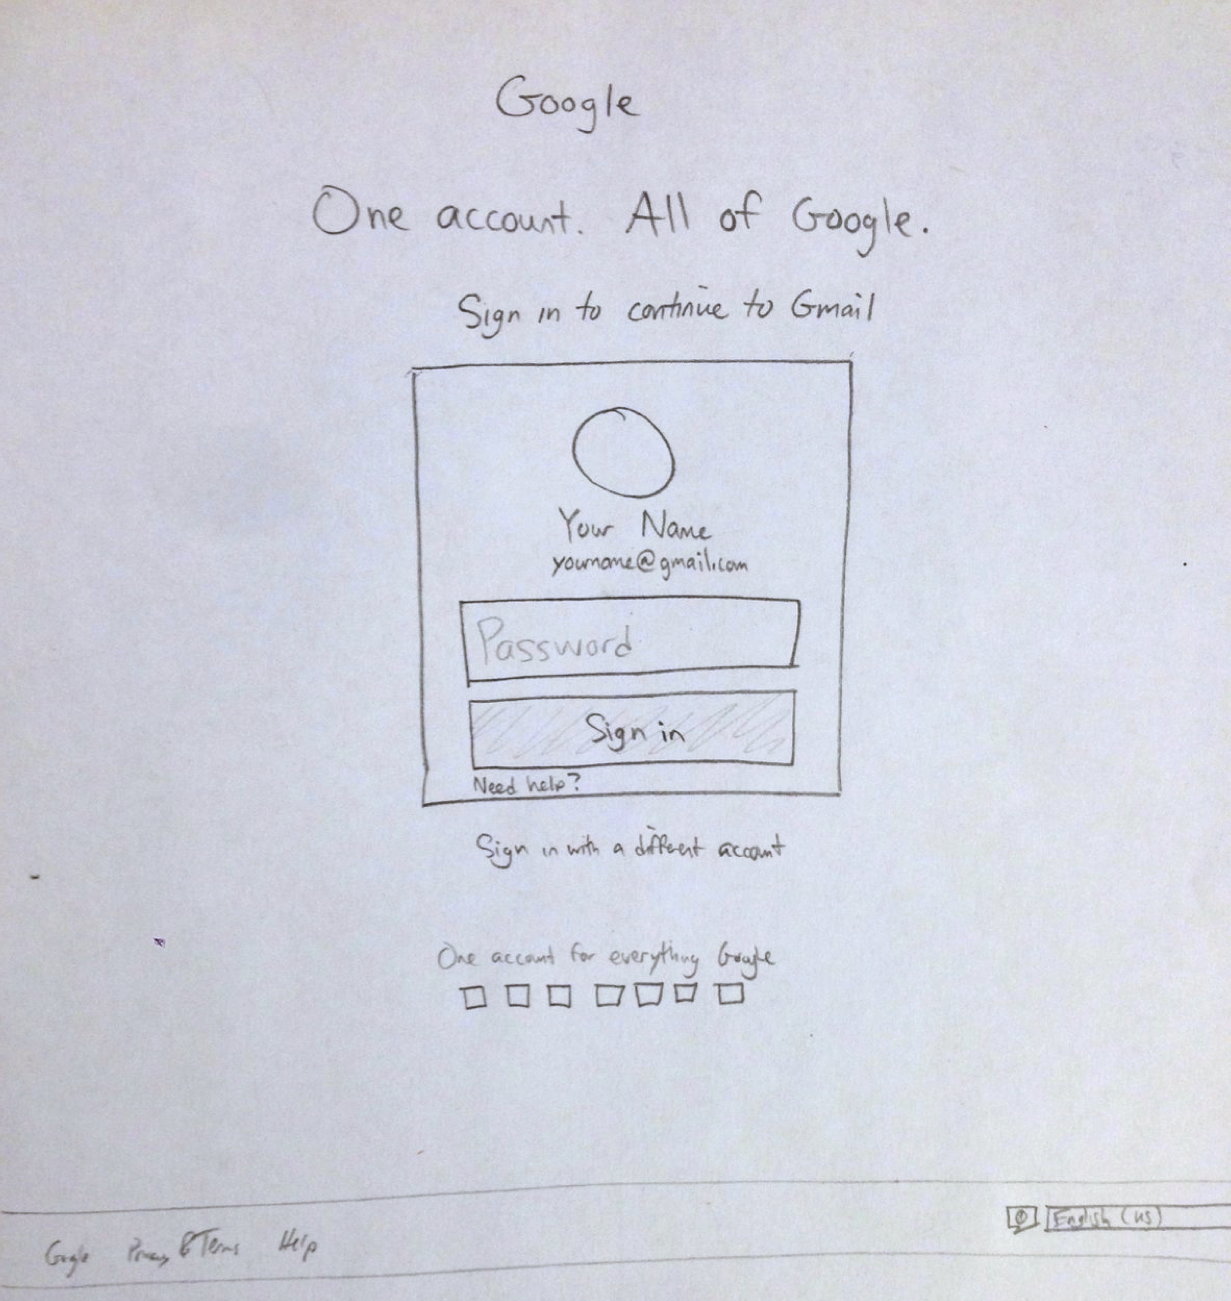 Google
One account. All of Google.
Sign in to continue to Gmail
Your Name
yourname@gmail.com
Password
Sign in
Need help?
Sign in with a different account
One account for everything Google
Google Privacy & Terms Help
English (US)